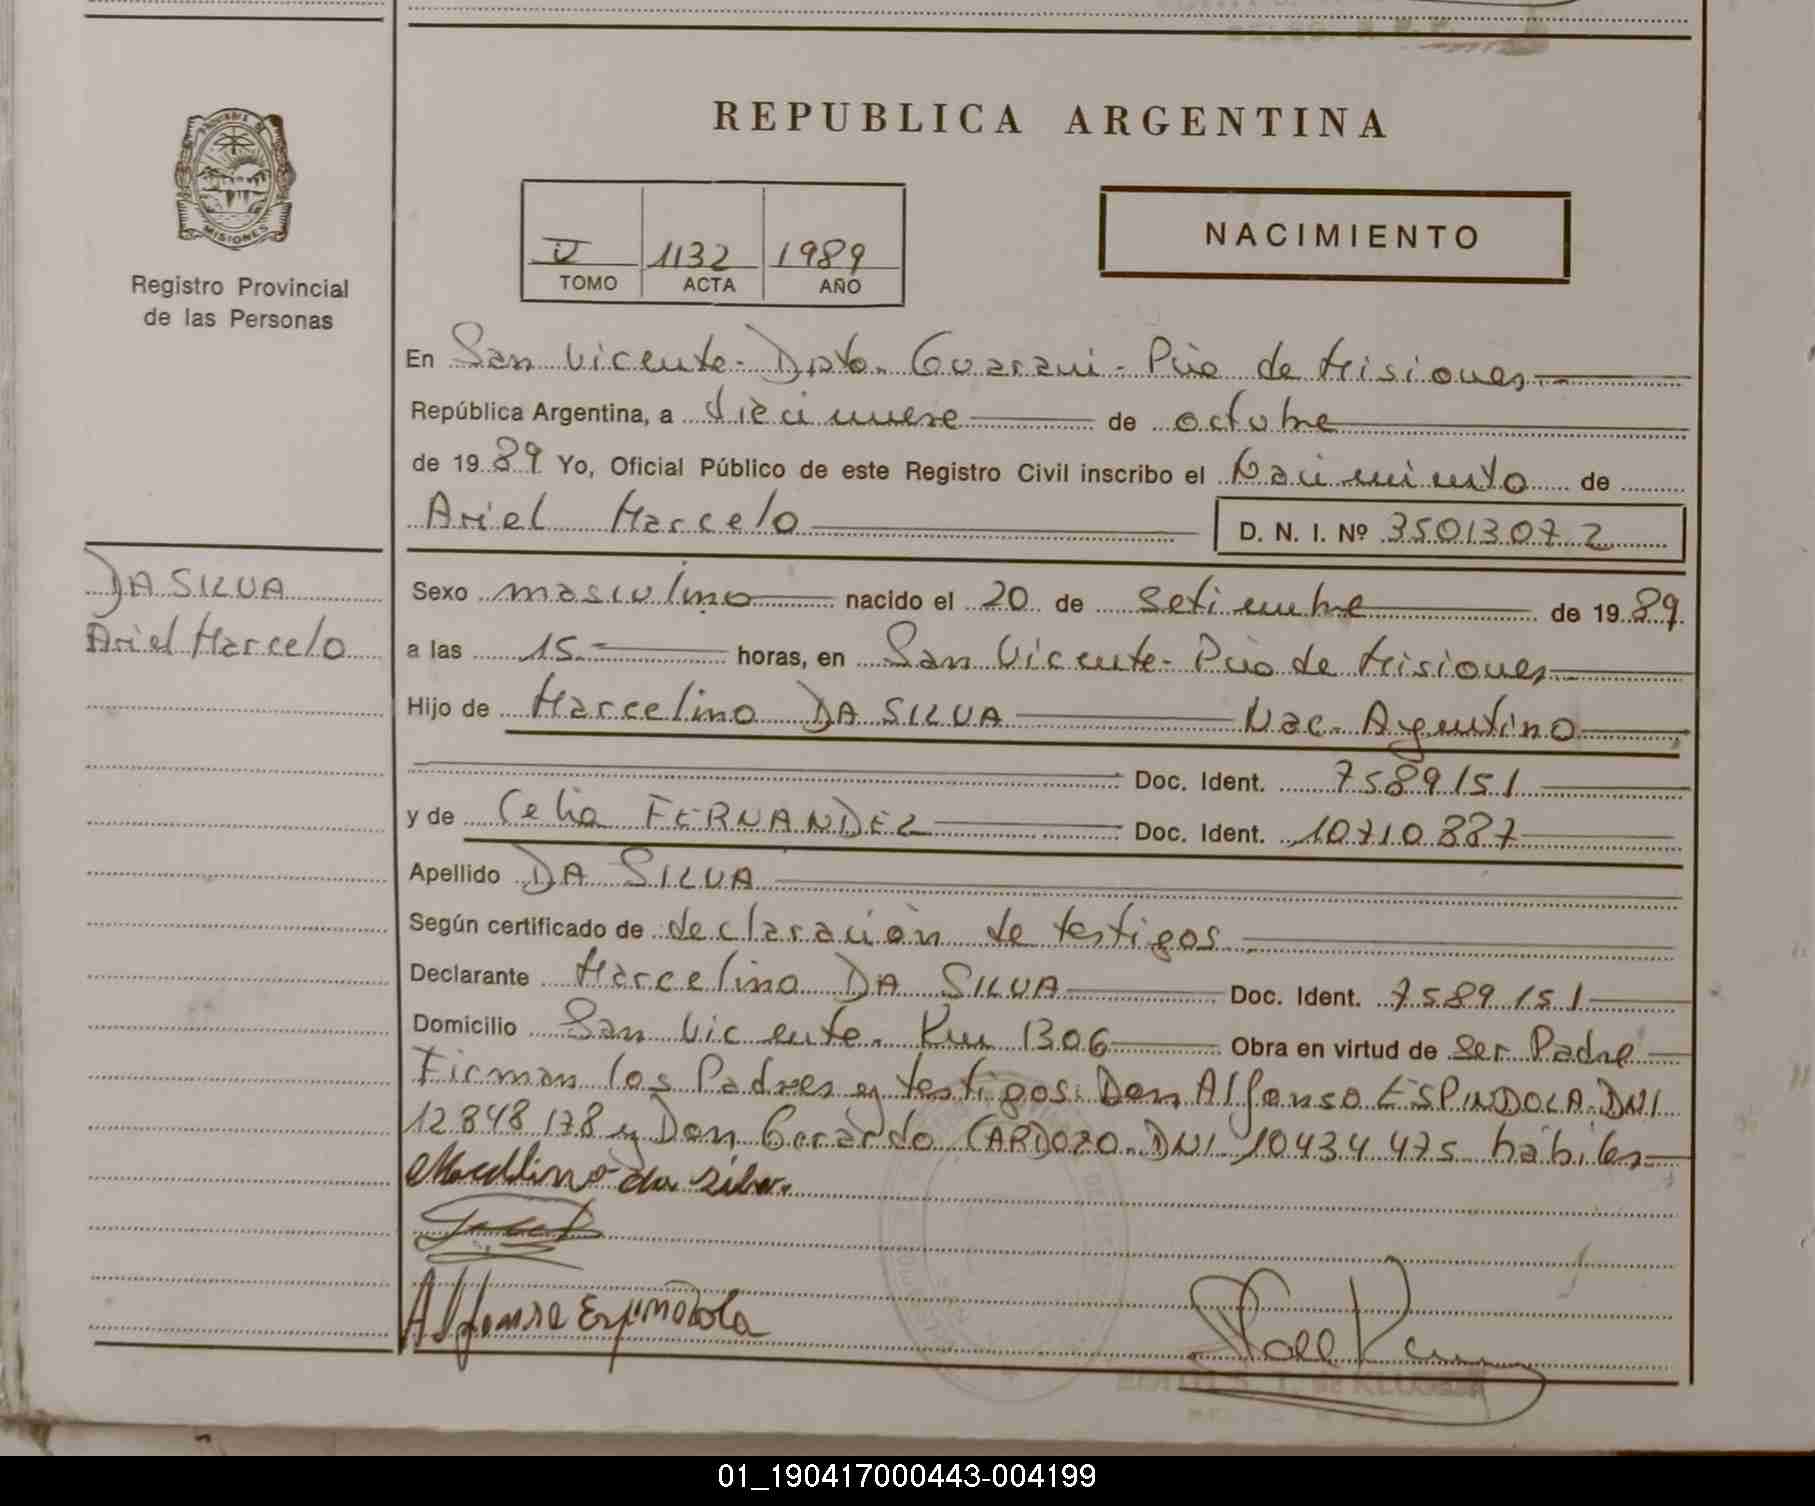 REPUBLICA ARGENTINA
MISIONES
Registro Provincial
de las Personas
1132 1989
TOMO ACTA AÑO
NACIMIENTO
En San Vicente - Dpto. Guarani - Pcia de Misiones
República Argentina, a diecinueve de octubre
de 1989 Yo, Oficial Público de este Registro Civil inscribo el Nacimiento de
Ariel Marcelo D. N. I. Nº 35013072
DA SILVA
Ariel Marcelo
Sexo masculino nacido el 20 de setiembre de 1989
a las 15 horas, en San Vicente - Pcia de Misiones
Hijo de Marcelino DA SILVA Nac. Argentino
Doc. Ident. 7589151
y de Celia FERNANDEZ Doc. Ident. 10710887
Apellido DA SILVA
Según certificado de declaración de testigos
Declarante Marcelino DA SILVA Doc. Ident. 7589151
Domicilio San Vicente. Km 1306 Obra en virtud de Ser Padre
Firman los Padres y testigos: Don Alfonso ESPINDOLA. DNI
12848178 y Don Gerardo CARDOZO. DNI 10434475 hábiles
Marcelino da silva.
Alfonso Espindola
01_190417000443-004199